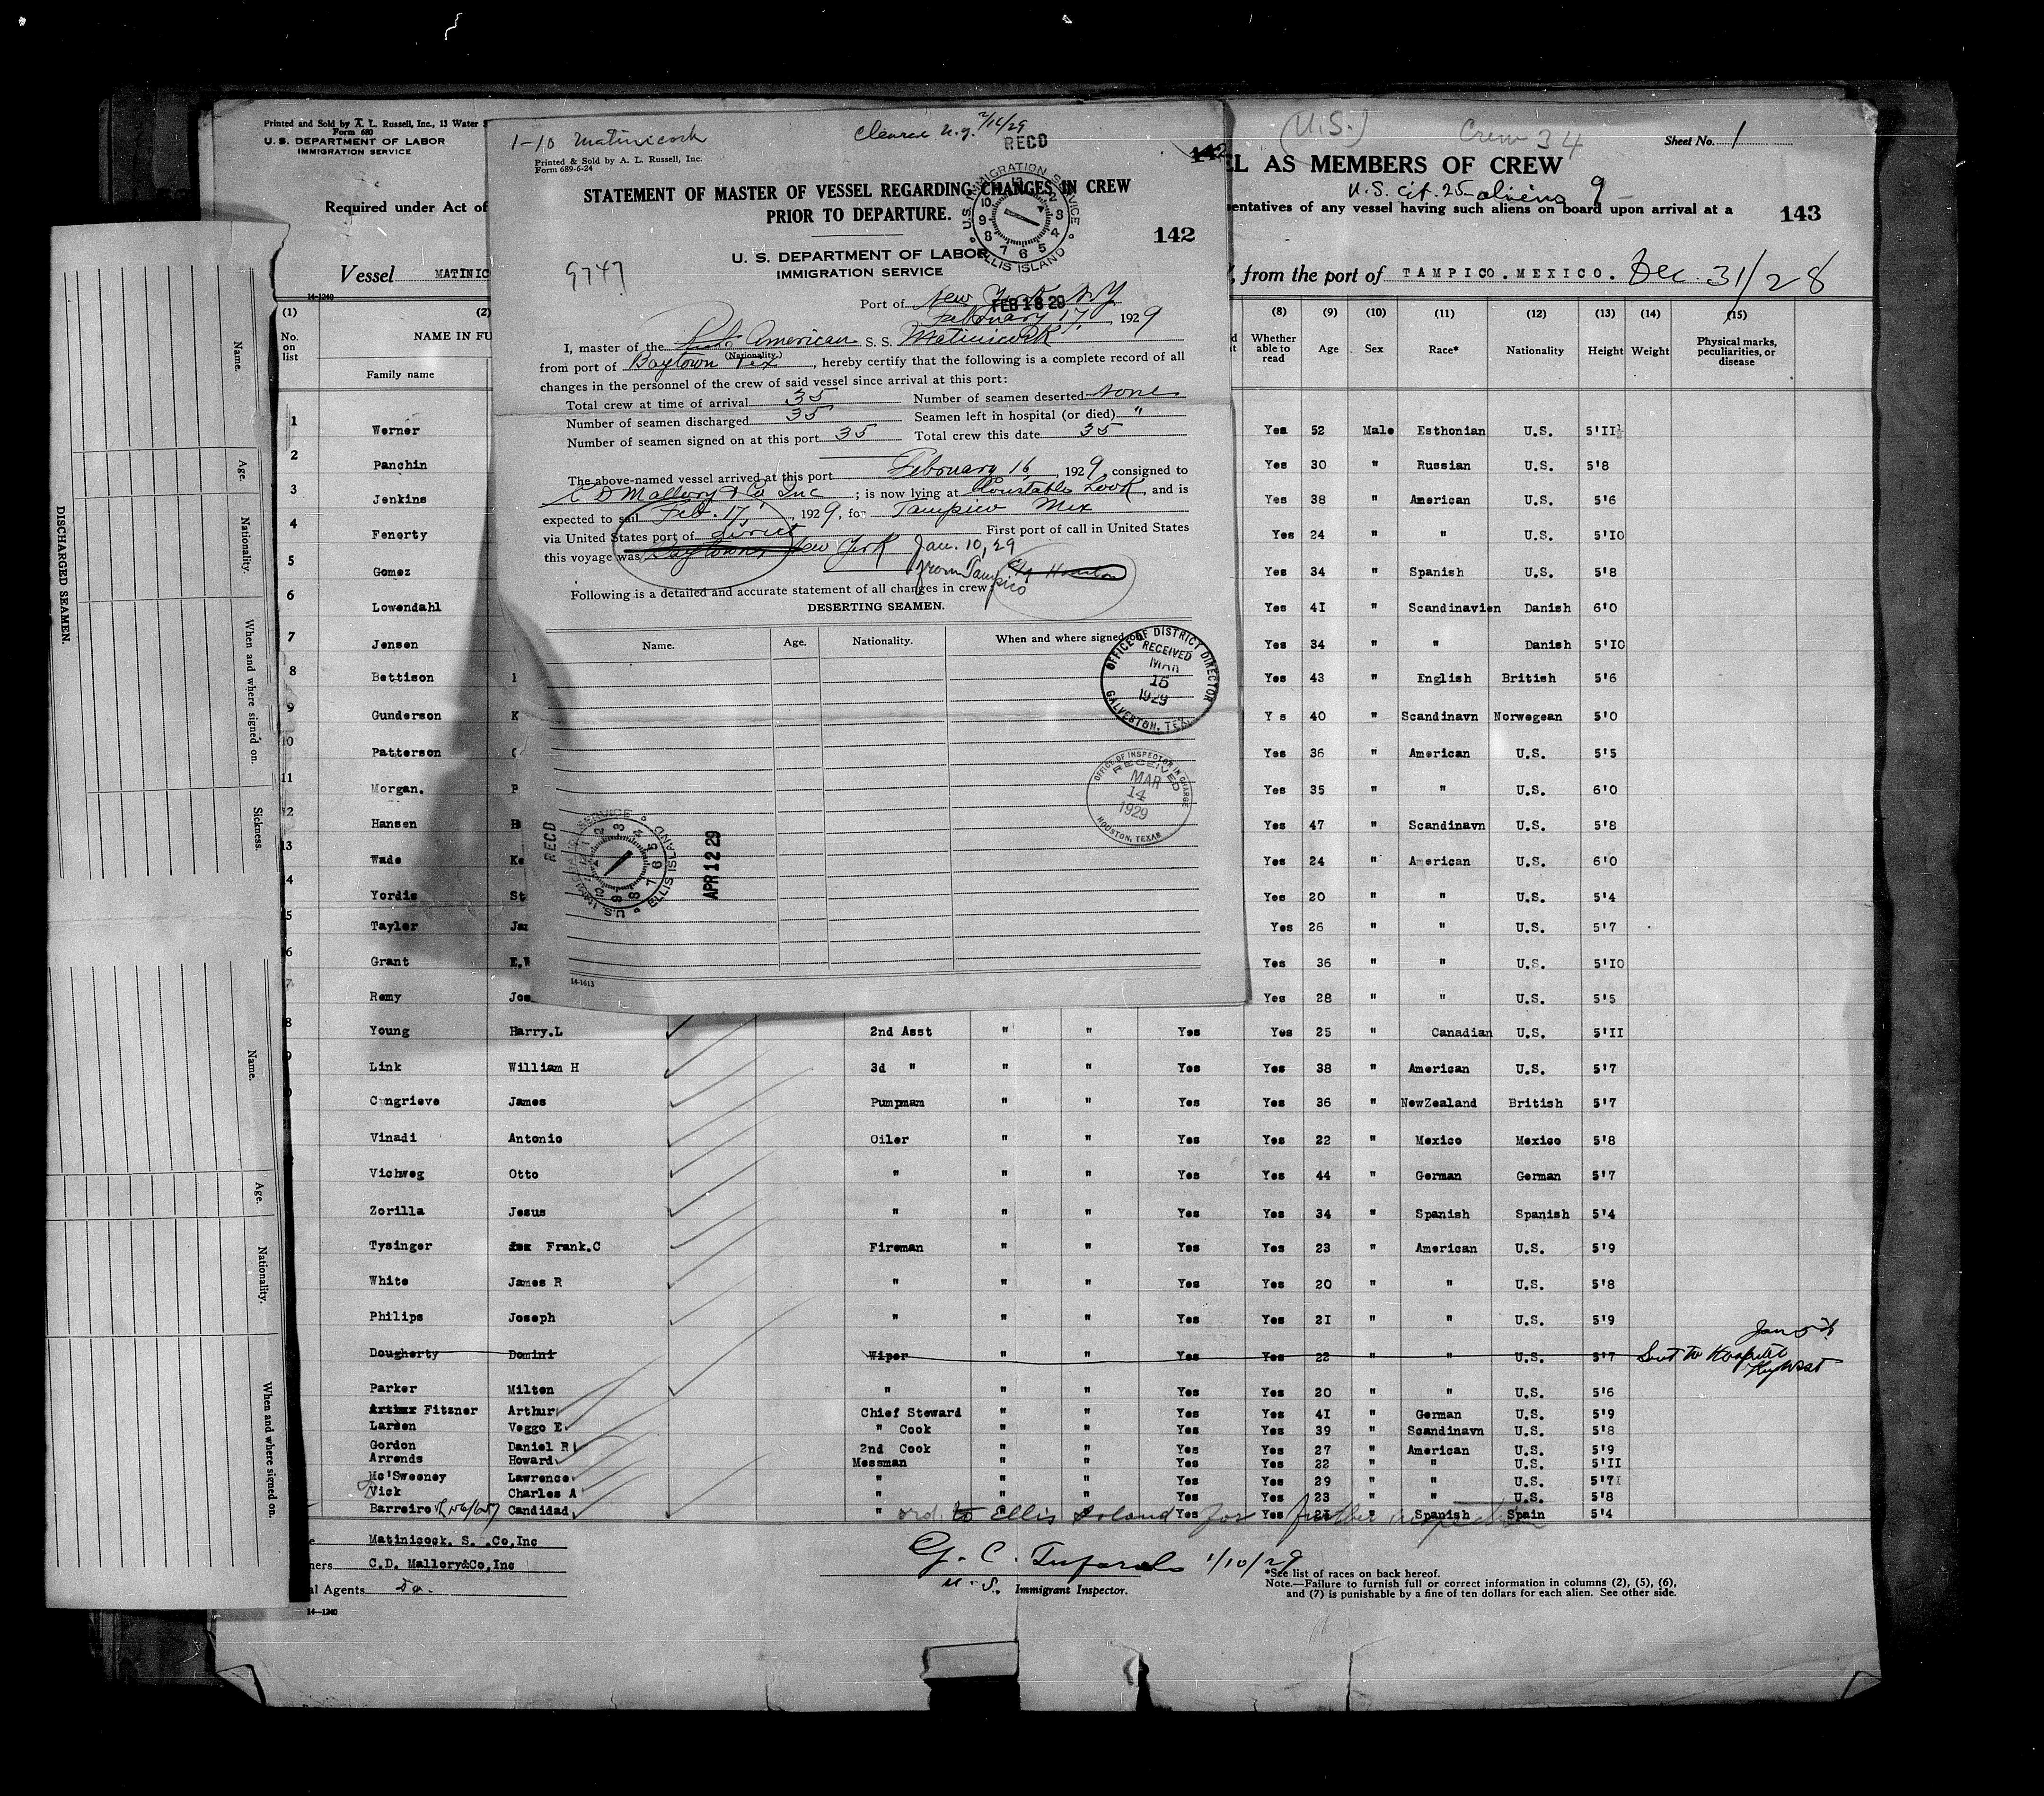 Printed and Sold by A. L. Russell, Inc., 13 Water
Form 680
U. S. DEPARTMENT OF LABOR
IMMIGRATION SERVICE
Required under Act of
Vessel MATINIC
14-1240
(1) (2)
No. on list
NAME IN FU
Family name
1-10 Matinicock
Cleared N.Y. 2/16/29
RECD
142
Printed & Sold by A. L. Russell, Inc.
Form 689-6-24
STATEMENT OF MASTER OF VESSEL REGARDING CHANGES IN CREW
PRIOR TO DEPARTURE.
142
U. S. DEPARTMENT OF LABOR
IMMIGRATION SERVICE
9747
U.S. IMMIGRATION SERVICE
ELLIS ISLAND
Port of New York NY
FEB 18 29
February 17, 1929
I, master of the American S. S. Matinicock
(Nationality.)
from port of Baytown Tex, hereby certify that the following is a complete record of all
changes in the personnel of the crew of said vessel since arrival at this port:
Total crew at time of arrival 35 Number of seamen deserted None
Number of seamen discharged 35 Seamen left in hospital (or died) "
Number of seamen signed on at this port 35 Total crew this date 35
The above-named vessel arrived at this port February 16, 1929, consigned to
C D Mallory & Co Inc; is now lying at Constable Hook, and is
expected to sail Feb. 17, 1929, for Tampico Mex
via United States port of direct First port of call in United States
this voyage was Baytown New York Jan. 10, 29
from Tampico
Houston
Following is a detailed and accurate statement of all changes in crew:
DESERTING SEAMEN.
Name. Age. Nationality. When and where signed on.
OFFICE OF DISTRICT DIRECTOR
RECEIVED
MAR
15
1929
GALVESTON, TEX.
OFFICE OF INSPECTOR IN CHARGE
RECEIVED
MAR
14
1929
HOUSTON, TEXAS
RECD
U.S. IMMIGRATION SERVICE
ELLIS ISLAND
APR 12 29
14-1613
(U.S.) Crew 34
Sheet No. 1
EL AS MEMBERS OF CREW
U.S. cit. 25 aliens 9
entatives of any vessel having such aliens on board upon arrival at a
143
, from the port of TAMPICO. MEXICO. Dec. 31/28
(8) (9) (10) (11) (12) (13) (14) (15)
Whether able to read Age Sex Race* Nationality Height Weight Physical marks, peculiarities, or disease
1 Werner Yes 52 Male Esthonian U.S. 5'11½
2 Panchin Yes 30 " Russian U.S. 5'8
3 Jenkins Yes 38 " American U.S. 5'6
4 Fenerty Yes 24 " " U.S. 5'10
5 Gomez Yes 34 " Spanish U.S. 5'8
6 Lowendahl Yes 41 " Scandinavien Danish 6'0
7 Jensen Yes 34 " " Danish 5'10
8 Bettison Yes 43 " English British 5'6
9 Gunderson K Y s 40 " Scandinavn Norwegean 5'0
10 Patterson Yes 36 " American U.S. 5'5
11 Morgan. P Yes 35 " " U.S. 6'0
12 Hansen Yes 47 " Scandinavn U.S. 5'8
13 Wade Ke Yes 24 " American U.S. 6'0
14 Yordis St Yes 20 " " U.S. 5'4
15 Tayler Jam Yes 26 " " U.S. 5'7
6 Grant E.W Yes 36 " " U.S. 5'10
7 Remy Jos Yes 28 " " U.S. 5'5
8 Young Harry.L 2nd Asst " " Yes Yes 25 " Canadian U.S. 5'11
9 Link William H 3d " " " Yes Yes 38 " American U.S. 5'7
Congrieve James Pumpman " " Yes Yes 36 " NewZealand British 5'7
Vinadi Antonio Oiler " " Yes Yes 22 " Mexico Mexico 5'8
Vichweg Otto " " " Yes Yes 44 " German German 5'7
Zorilla Jesus " " " Yes Yes 34 " Spanish Spanish 5'4
Tysinger Frank.C Fireman " " Yes Yes 23 " American U.S. 5'9
White James R " " " Yes Yes 20 " " U.S. 5'8
Philips Joseph " " " Yes Yes 21 " " U.S. 5'9
Dougherty Domini Wiper " " Yes Yes 22 " " U.S. 5'7 Sent to Hospital Key West Jan 5th
Parker Milton " " " Yes Yes 20 " " U.S. 5'6
Arthur Fitzner Arthur Chief Steward " " Yes Yes 41 " German U.S. 5'9
Larsen Veggo E " Cook " " Yes Yes 39 " Scandinavn U.S. 5'8
Gordon Daniel R 2nd Cook " " Yes Yes 27 " American U.S. 5'9
Arrends Howard Messman " " Yes Yes 22 " " U.S. 5'11
Mc'Sweeney Lawrence " " " Yes Yes 29 " " U.S. 5'71
Vick Charles A " " " Yes Yes 23 " " U.S. 5'8
Barreiro Candidad " Yes Yes 21 " Spanish Spain 5'4
ord. to Ellis Island for further inspection
Matinicock. S. .Co,Inc
ners C.D. Mallory&Co,Inc
al Agents Do.
14-1240
1/10/29
U.S. Immigrant Inspector.
*See list of races on back hereof.
Note.—Failure to furnish full or correct information in columns (2), (5), (6),
and (7) is punishable by a fine of ten dollars for each alien. See other side.
DISCHARGED SEAMEN.
Name.
Age.
Nationality.
When and where signed on.
Sickness.
Name.
Age.
Nationality.
When and where signed on.